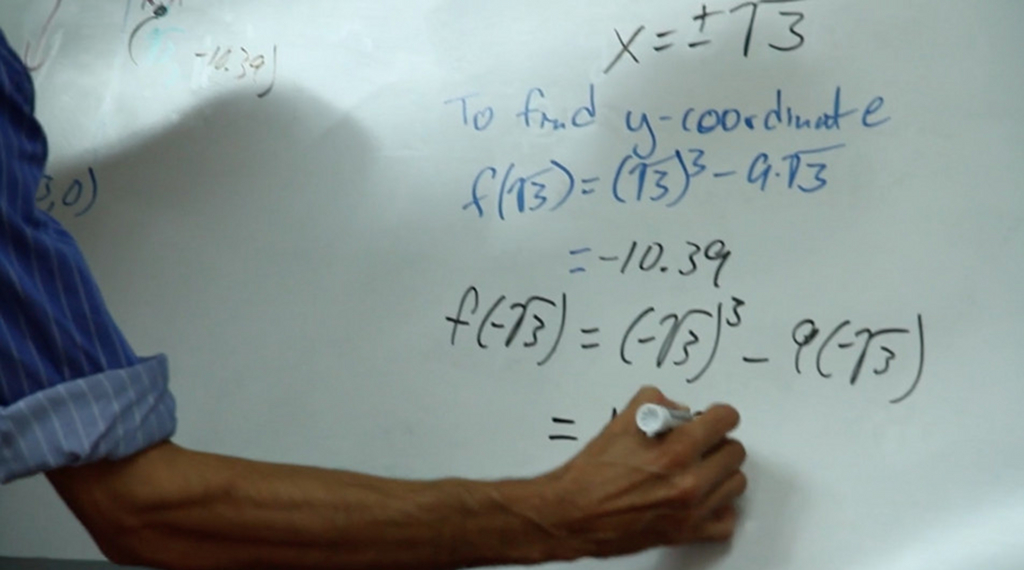 -10.39)
x = ±√3
To find y-coordinate
f(√3) = (√3)³ - 9·√3
3,0)
= -10.39
f(-√3) = (-√3)³ - 9(-√3)
=